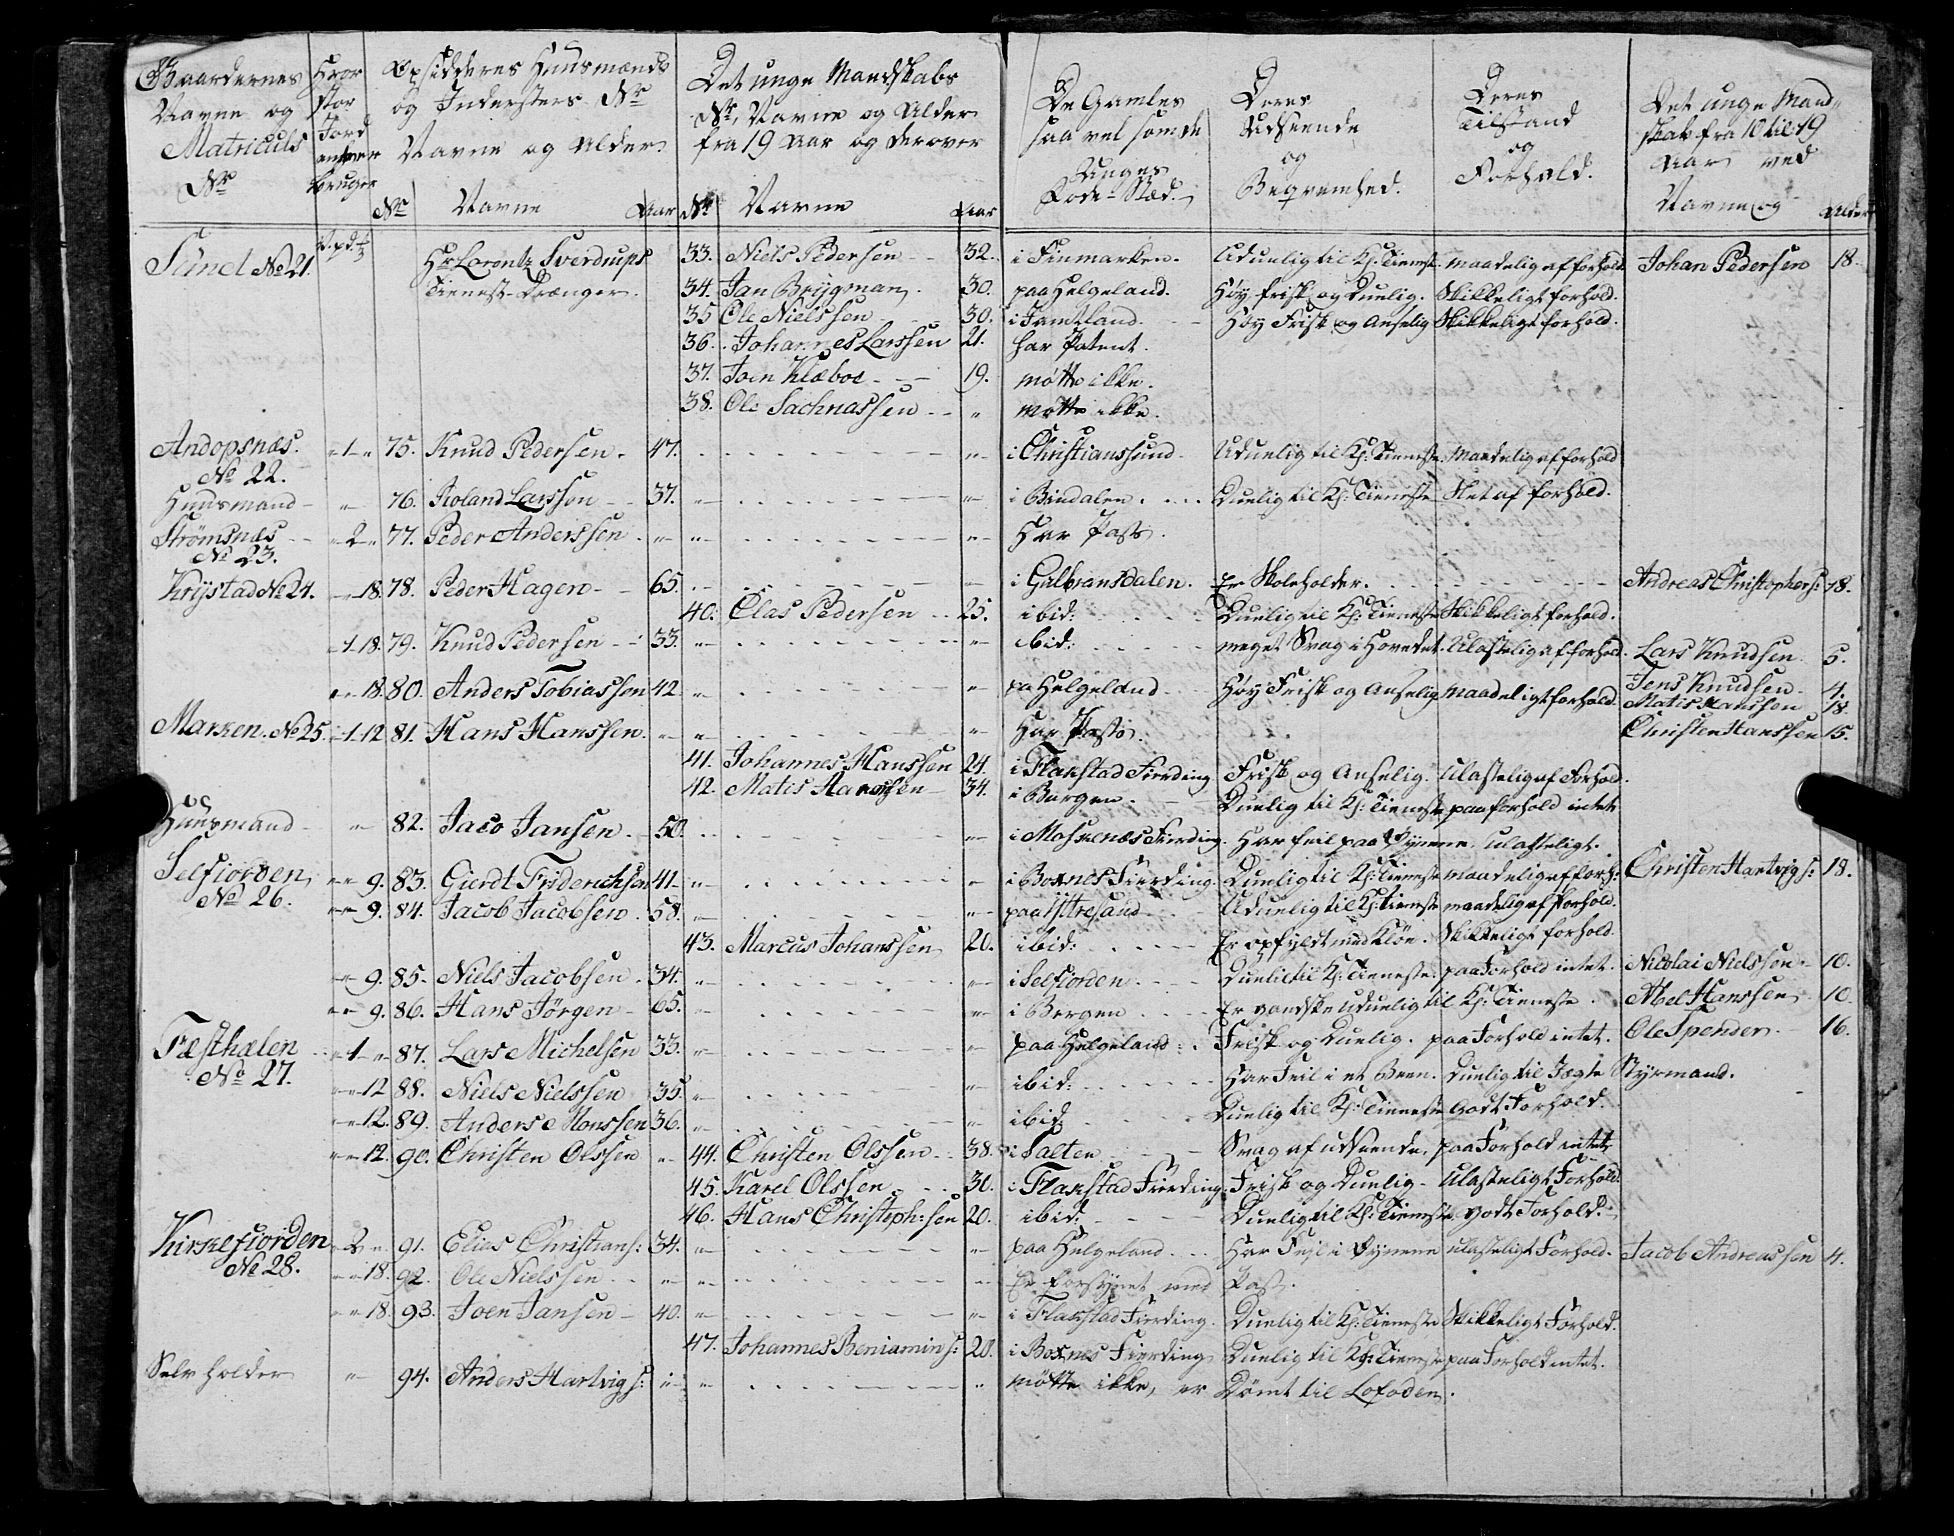 Gaardernes Navne og Matriculs No | Hvor stor Jord enhver bruger | Opsidderes Huusmænds og Indersters No Navne og Alder. | Det unge Mandskabs No, Navne og Alder fra 19 Aar og derover | De Gamles saavelsom de Unges Føde-Stæd. | Deres Udseende og Beqvemhed. | Deres Tilstand og Forhold. | Det unge Mandskab fra 10 til 19 Aar ved Navne og Alder
No | Navne | Aar | No | Navne | Aar
Sund No 21. | Hr Lorentz Sverdrups | 33. Niels Pedersen | 32. | i Finmarken. | Uduelig til Kg: Tieneste | maadelig af forhold | Johan Pedersen | 18.
Tienest-Drænger. | 34. Jan Brÿgman | 30. | paa Helgeland. | Høy frisk og Duelig. | Skikkeligt forhold.
35 Ole Nielssen | 30. | i Jemtland. | Høy Frisk og Anselig | Skikkeligt forhold.
36. Johannes Larssen | 21. | har Patent.
37. Joen Klæboe | 19. | møtte ikke.
38. Ole Sachnassen | " | møtte ikke.
Andopsnæs. No 22. | "1" | 75. Knud Pedersen. | 47. | i Christianssund | Uduelig til Kg: Tieneste | Maadelig af forhold
Huusmand | 76. Roland Larssen | 37. | i Bindalen. | Duelig til Kg: Tieneste | Slet af forhold.
Strömsnæs No 23. | "2" | 77. Peder Anderssen | Har Pass.
Krÿstad No 24. | 18. | 78. Peder Hagen | 65. | i Gulbransdalen. | Er Skoleholder. | Andreas Christophers: | 18.
40. Clas Pedersen | 25. | ibid: | Duelig til Kg: Tieneste | Skikkeligt forhold.
1 18. | 79. Knud Pedersen | 33. | ibid: | meget Svag i Hovedet. | Ulastelig af forhold. | Lars Knudsen | 5.
18. | 80. Anders Tobiassen | 42 | pa Helgeland | Høy Frisk og Anselig | maadeligt forhold. | Jens Knudsen | 4.
Matis Hanssen | 18.
Marken. No 25. | 1 12 | 81. Hans Hanssen. | Har Pass. | Christen Hanssen | 15.
41. Johannes Hanssen | 24. | i Flakstad Fierding | Frisk og Anselig. | Ulastelig af Forhold.
42. Matis Hanssen | 34. | i Bergen. | Duelig til Kg: Tieneste | paa forhold intet
Huusmand | 82. Jaco Jansen | 50. | i Moskenæs Fierding. | Har feil paa Øynene. | Ulasteligt.
Selfiorden No 26. | 9. | 83. Gierdt Friderichsen | 41 | i Boxnes Fierding. | Duelig til Kg: Tieneste | maadelig af forh: | Christen Hartvigs: | 18.
9. | 84. Jacob Jacobsen | 58. | paa Yttresand | Uduelig til Kg: Tieneste | maadelig af forhold.
43. Marcus Johanssen | 20. | ibid: | Er opfyldt med Kløe. | Skikkeligt forhold.
9. | 85. Niels Jacobsen. | 34. | i Selfiorden | Duelig til Kg: Tieneste. | paa Forhold intet. | Nicolai Nielssen | 10.
9. | 86. Hans Jörgen | 65. | i Bergen | Er gandske Uduelig til Kg: Tieneste. | Abel Hanssen | 10.
Fæsthælen No 27. | 1 | 87. Lars Michelsen | 33. | paa Helgeland. | Frisk og Duelig. | paa Forhold intet. | Ole Spender. | 16.
12 | 88. Niels Nielssen | 35. | ibid: | Har Feil i et Been. | Duelig til Jægte Styrmand.
12. | 89. Anders Monssen | 36. | ibid: | Duelig til Kg: Tieneste | Godt Forhold.
12. | 90. Christen Olssen | 44. Christen Olssen | 38. | i Salten | Svag af udseende. | paa Forhold intet
45. Karel Olssen | 30. | i Flakstad Fierding. | Frisk og Duelig | Ulasteligt Forhold
46. Hans Christoph:sen | 20. | ibid: | Duelig til Kg: Tieneste | godt Forhold.
Kirkefiorden No 28. | 2 | 91. Elias Christians: | 34. | paa Helgeland | Har Feil i Øynene | ulasteligt Forhold. | Jacob Andreassen | 4.
18. | 92. Ole Nielssen | Er forsÿnet med Pass.
18. | 93. Joen Jansen | 40. | i Flakstad Fierding. | Duelig til Kg: Tieneste | Skikkeligt Forhold.
47. Johannes Beniamins: | 20. | i Boxnes Fierding | Duelig til Kg: Tieneste | paa Forhold intet.
Selv holder | 94. Anders Hartvigs: | møtte ikke, er Dömt til Lofoden.